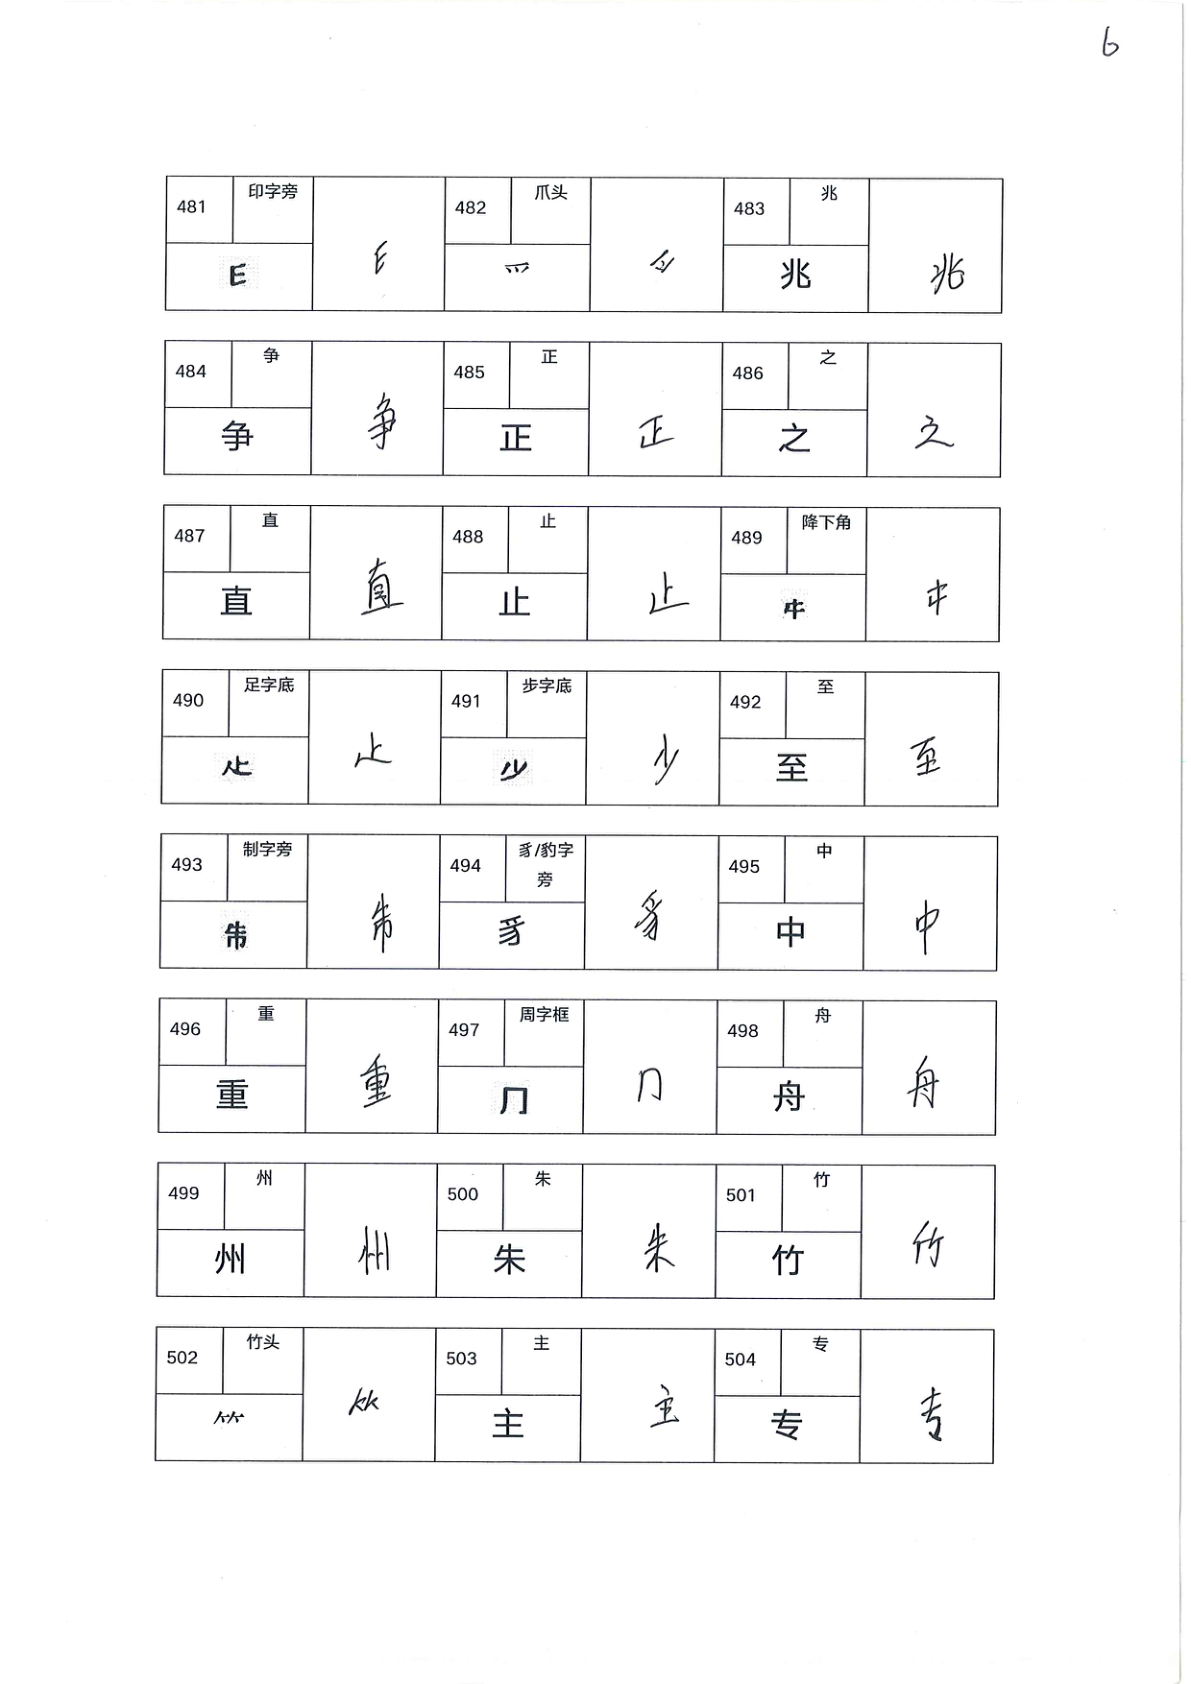 6
481 印字旁 482 爪头 483 兆
爫 兆 兆
484 争 485 正 486 之
争 争 正 正 之 之
487 直 488 止 489 降下角
直 直 止 止 㐄 㐄
490 足字底 491 步字底 492 至
少 至 至
493 制字旁 494 豸/豹字旁 495 中
豸 豸 中 中
496 重 497 周字框 498 舟
重 重 ⺆ ⺆ 舟 舟
499 州 500 朱 501 竹
州 州 朱 朱 竹 竹
502 竹头 503 主 504 专
⺮ ⺮ 主 主 专 专